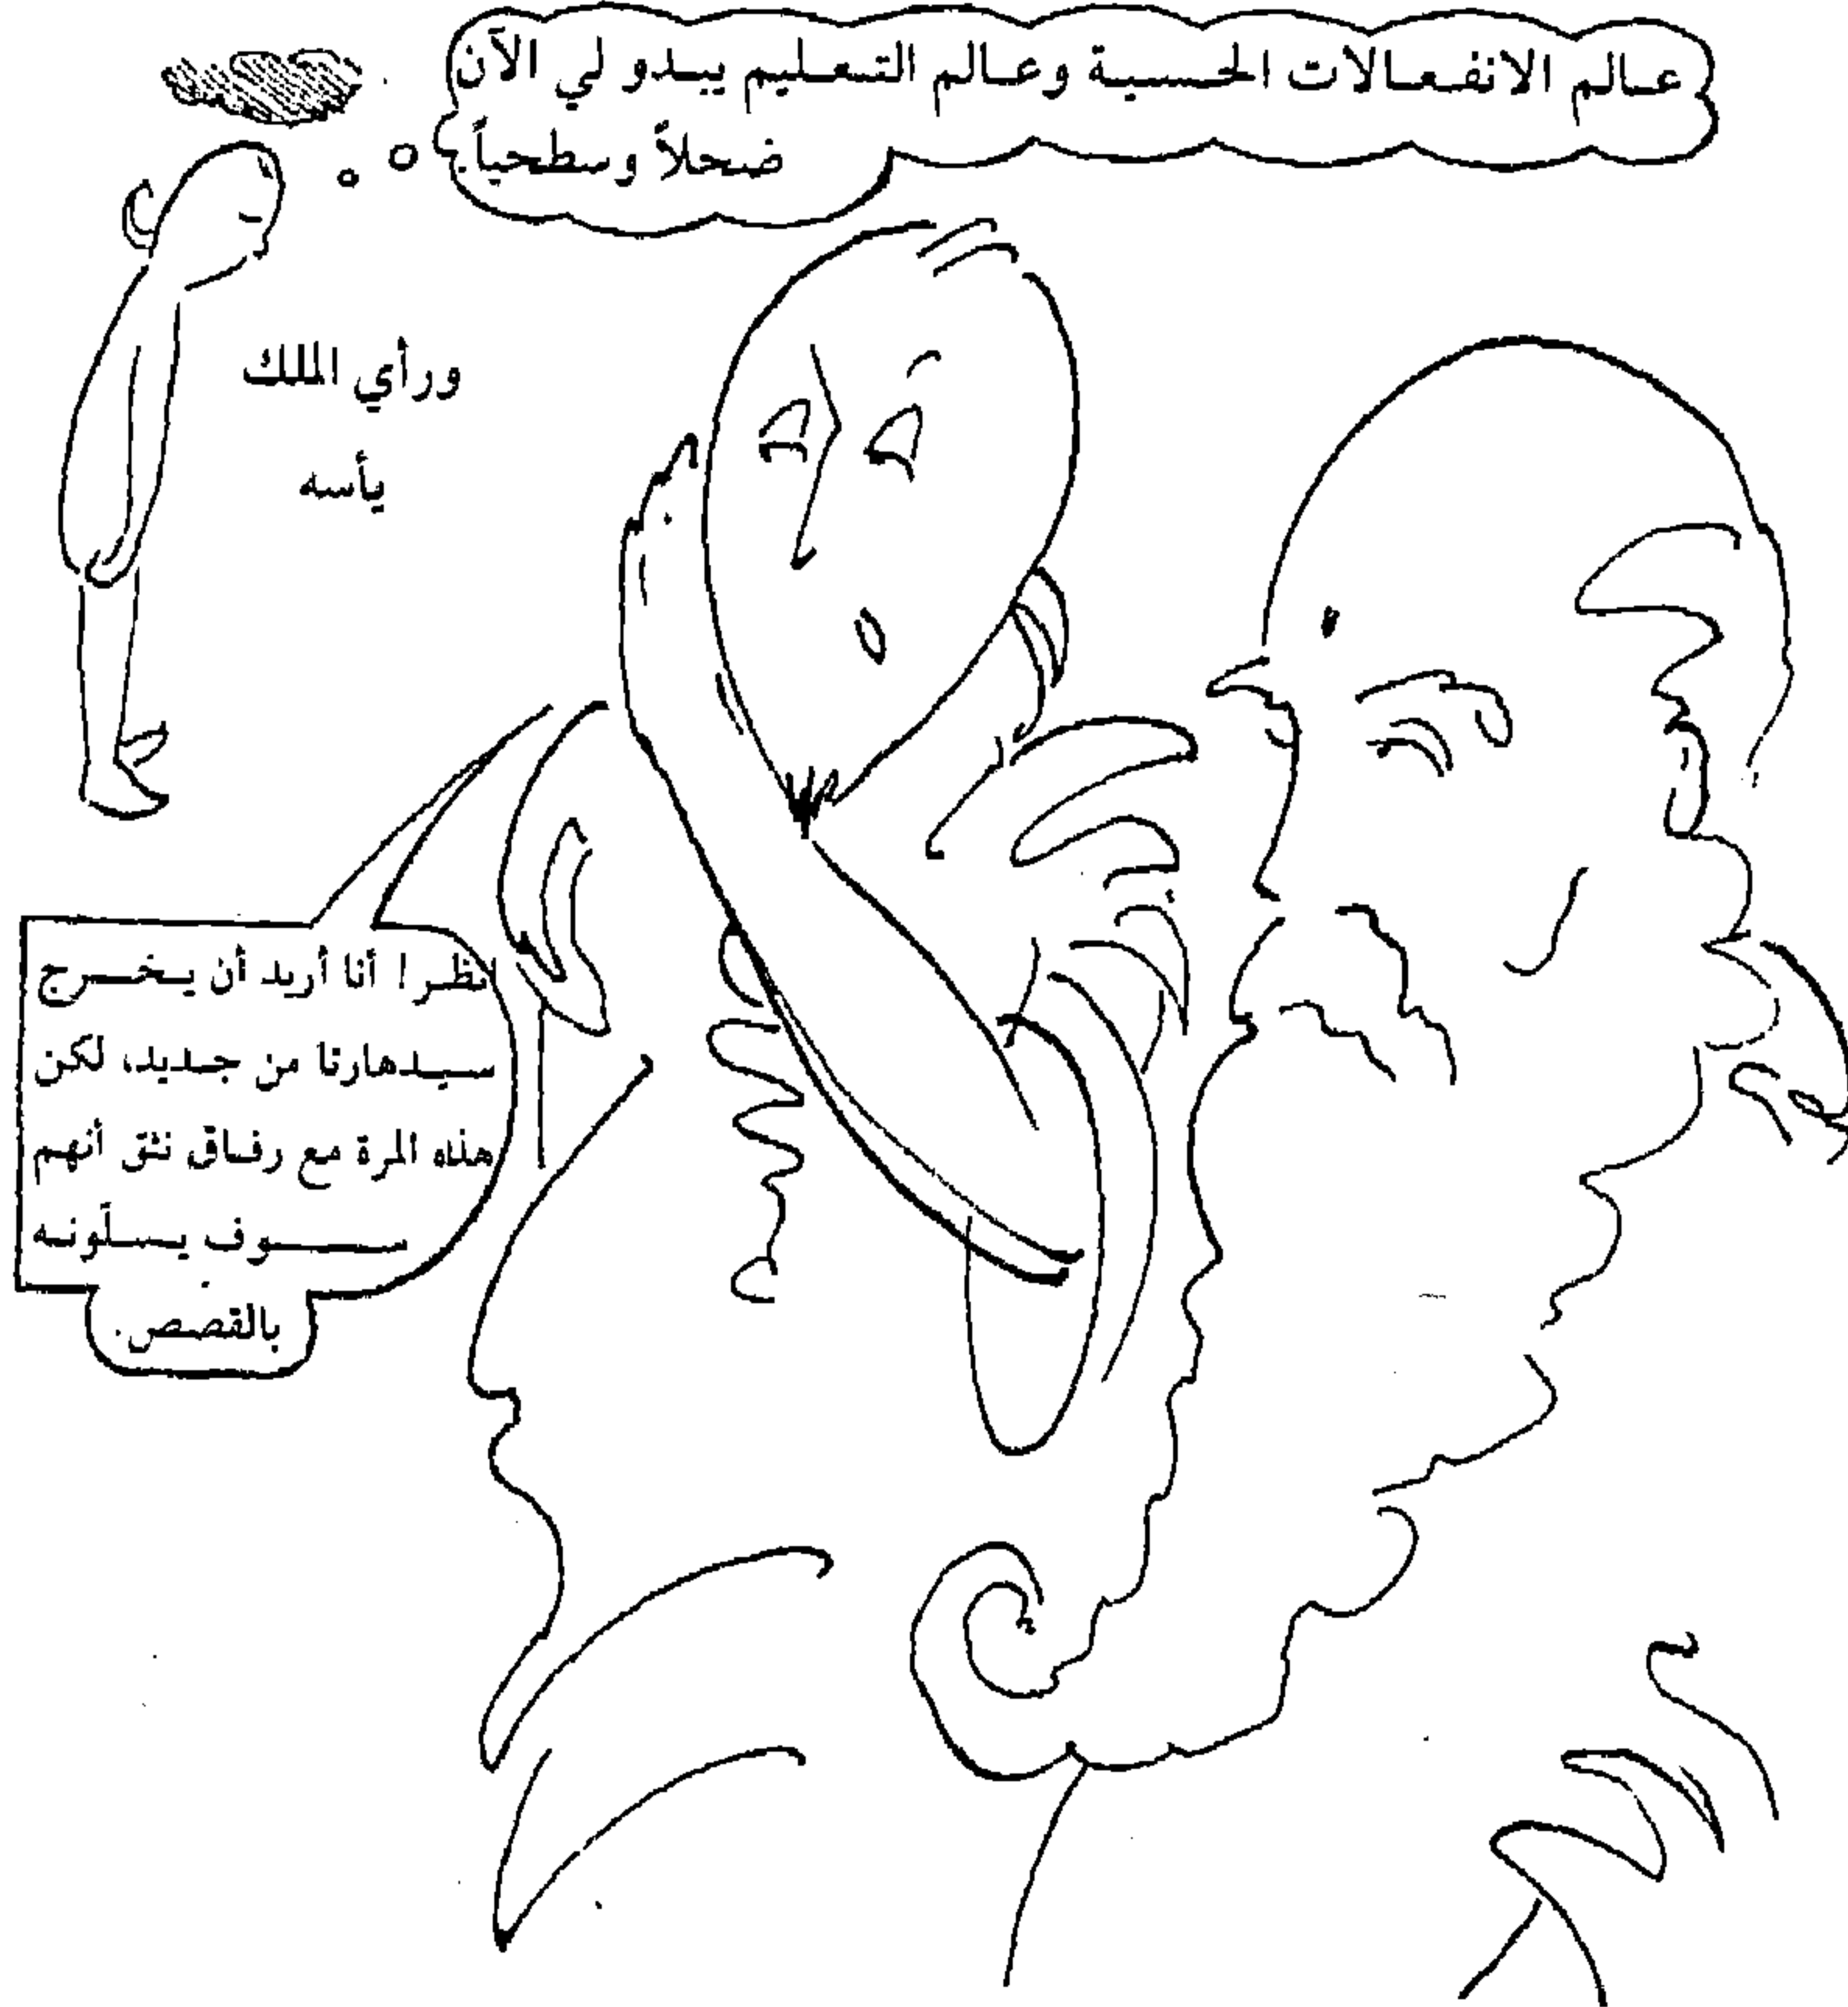 عالم الانفعالات الحسية وعالم التعليم يبدو لي الآن
ضحلاً وسطحياً.
ورأي الملك
يأسه
انظر! أنا أريد أن يخرج
سيدهارتا من جديد، لكن
هذه المرة مع رفاق نثق أنهم
سوف يسلونه
بالقصص.